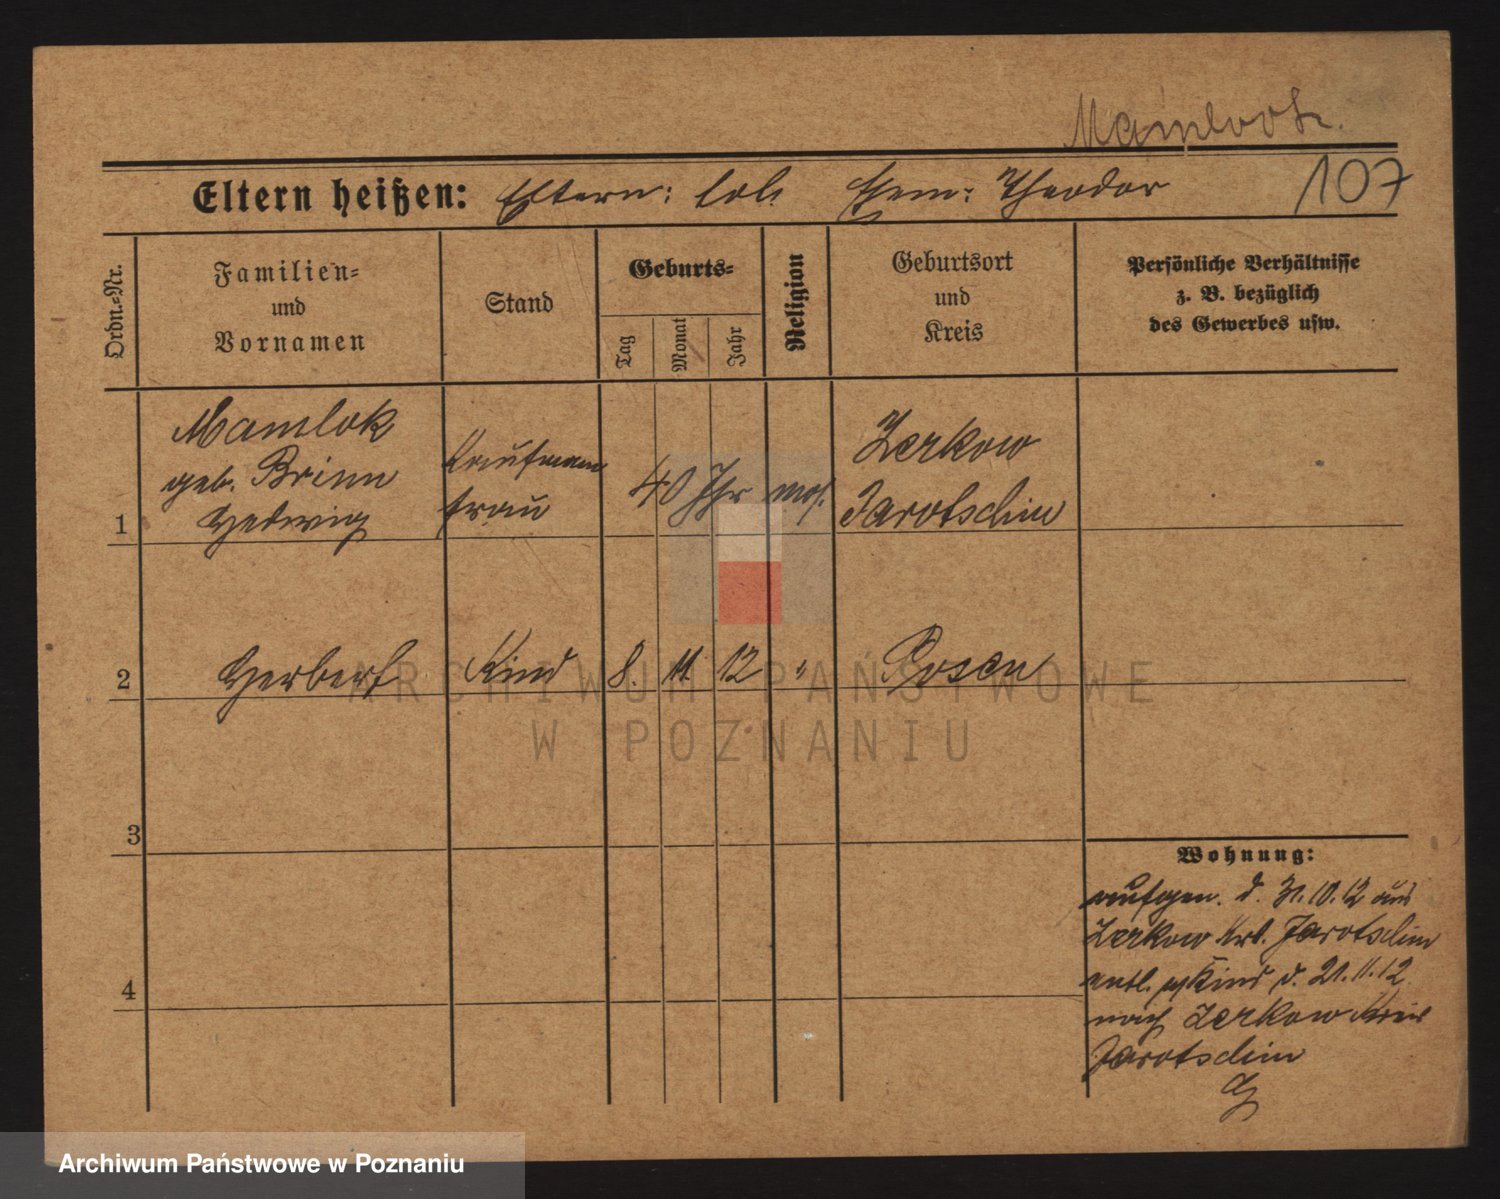 Mamlook.
Eltern heißen: Eltern: Ehem: Theodor 107
Ordn.-Nr.
Familien-
und
Vornamen
Stand
Geburts-
Tag
Monat
Jahr
Religion
Geburtsort
und
Kreis
Persönliche Verhältnisse
z. B. bezüglich
des Gewerbes usw.
1
Mamlok
geb. Brinn
Hedwig
Kaufmann
frau
40 Jhr
mos.
Zerkow
Jarotschin
2
Herbert
Kind
8. 11. 12
"
Posen
3
4
Wohnung:
aufgen. d. 31.10.12 aus
Zerkow Krs. Jarotschin
entl. Kind d. 21.11.12
nach Zerkow Kreis
Jarotschin
ARCHIWUM PAŃSTWOWE
W POZNANIU
Archiwum Państwowe w Poznaniu